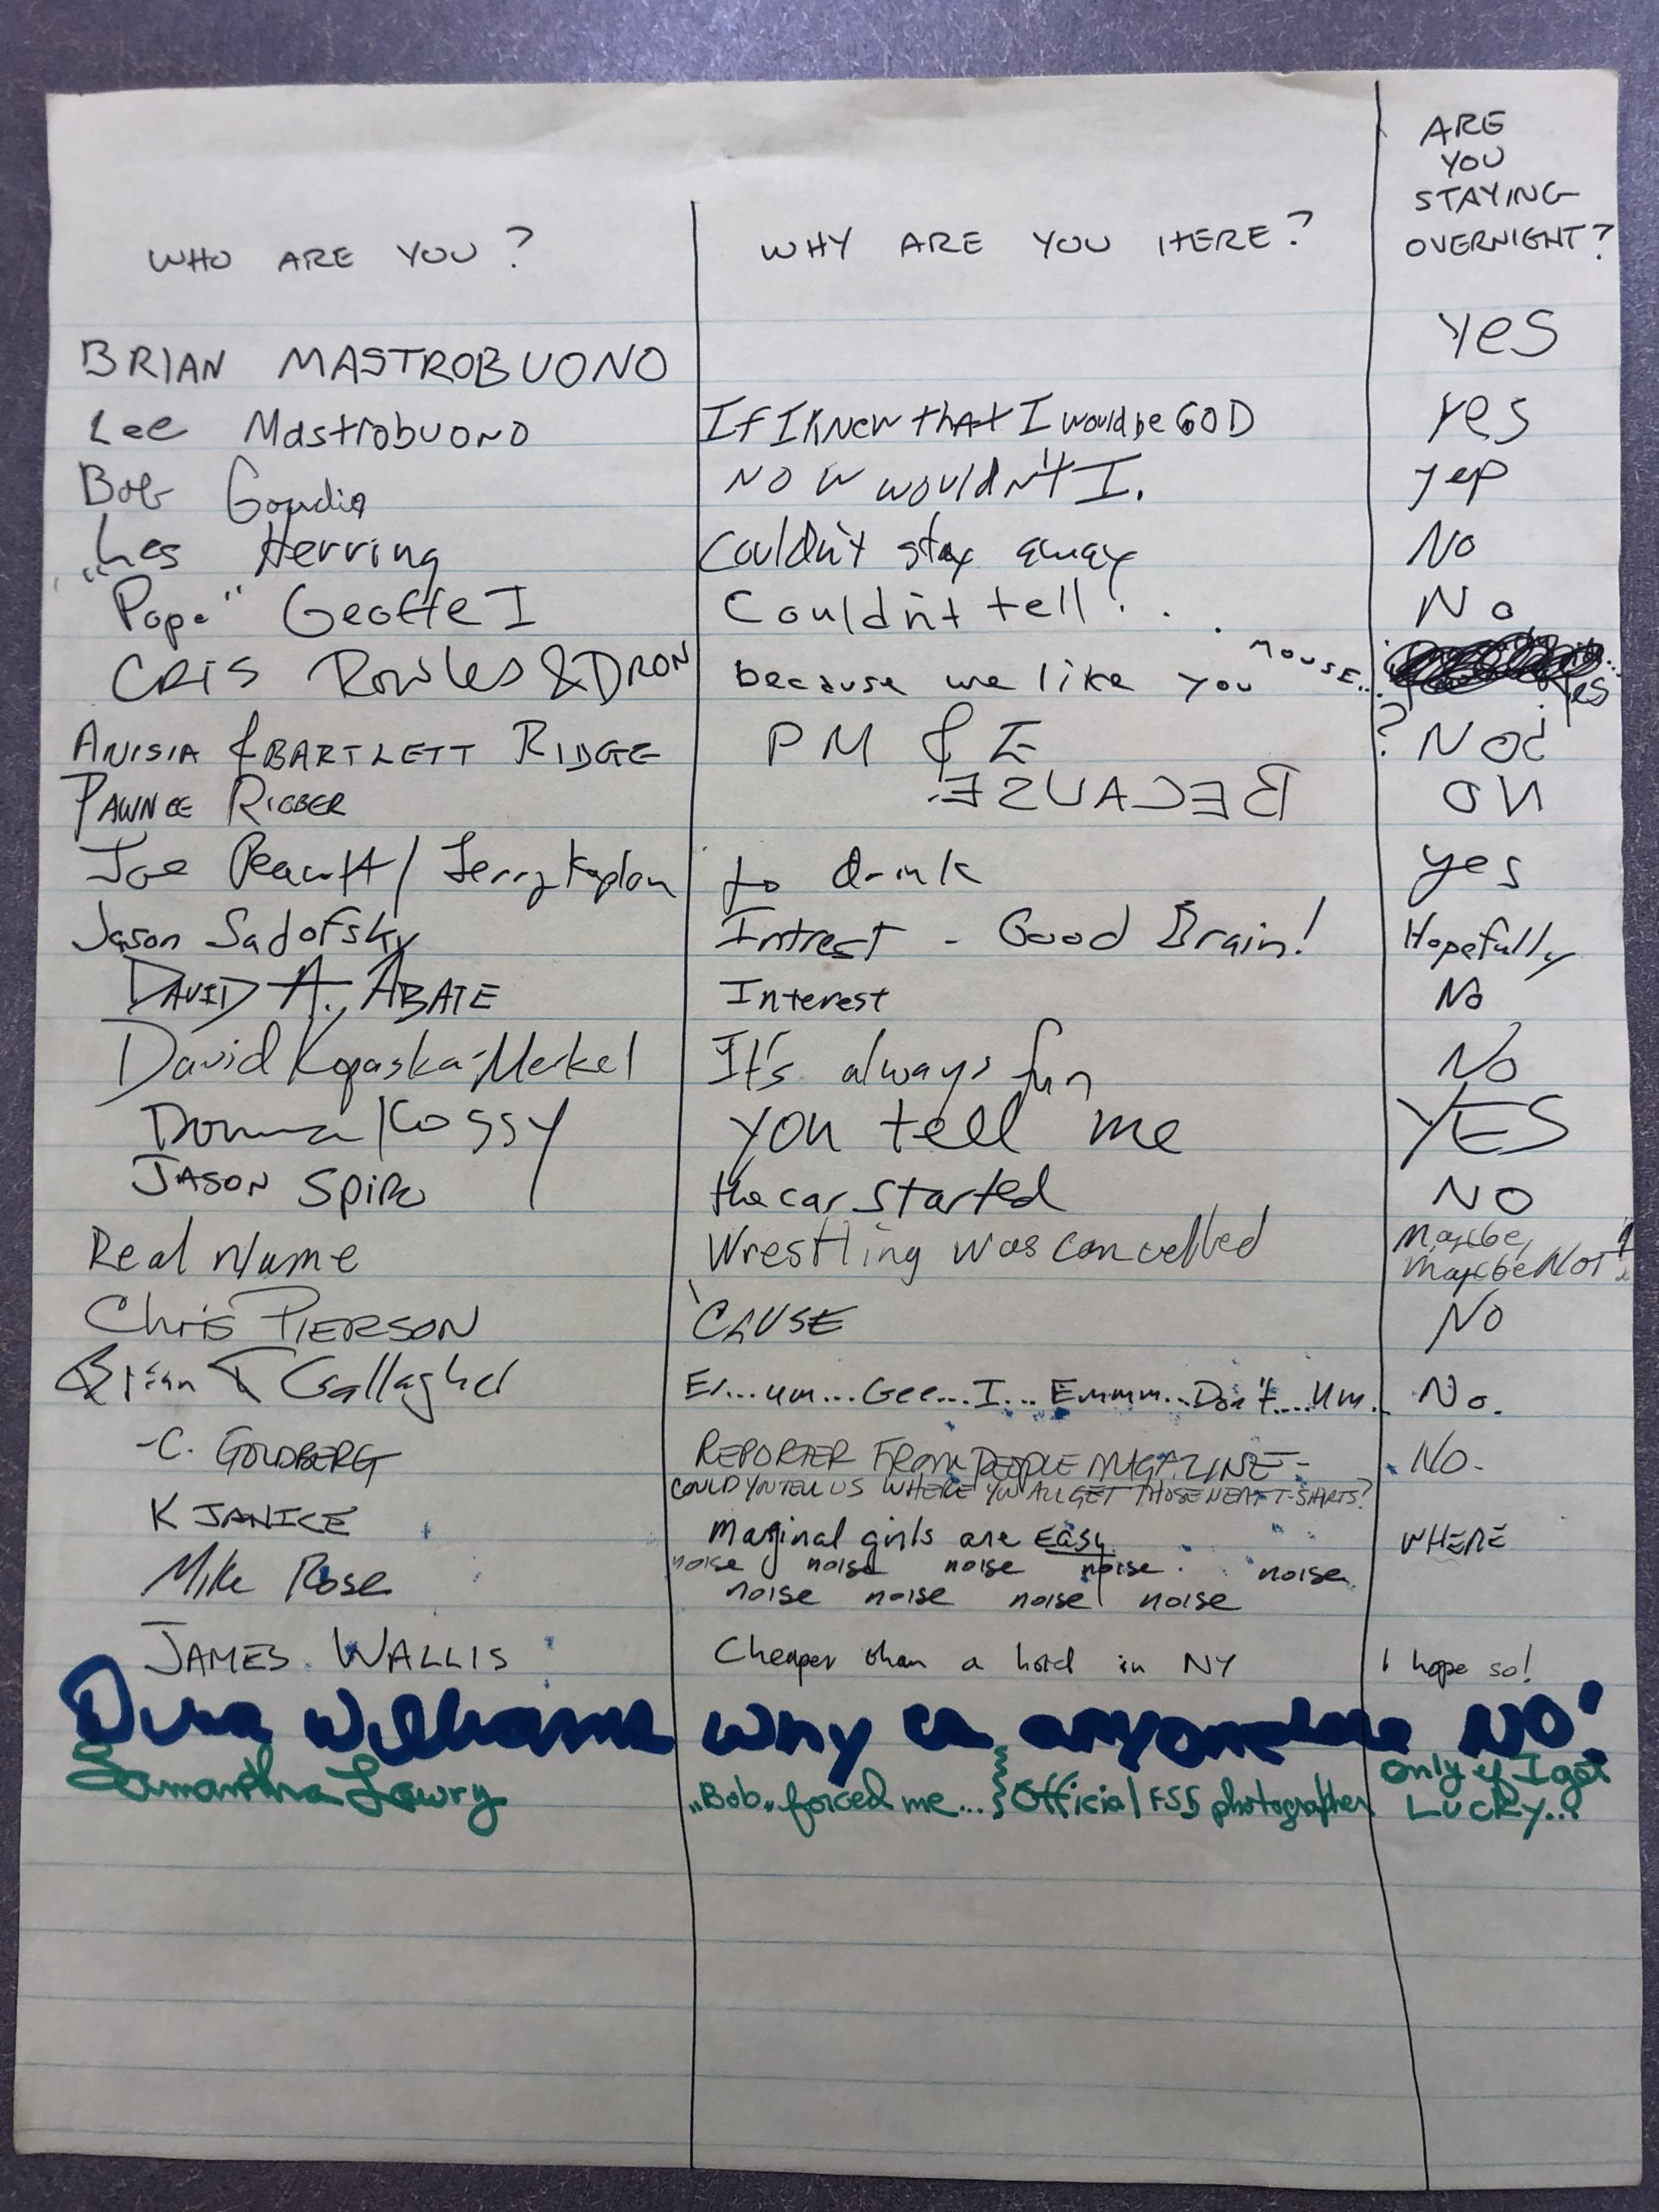 ARE
YOU
STAYING
WHO ARE YOU? WHY ARE YOU HERE? OVERNIGHT?
BRIAN MASTROBUONO YES
Lee Mastrobuono If I Knew that I would be GOD yes
Bob NOW wouldn't I. yep
Les Herring Couldn't stay away No
"Pope" Geoffe I Couldn't tell... No
CRIS Rowles & DRON because we like you MOUSE... Yes
ANISIA & BARTLETT RIDGE PM & E ? NO?
PAWNEE RIEBER BECAUSE. NO
Joe / Jerry Kaplan to drink yes
Jason Sadofsky Intrest - Good Brain! Hopefully
DAVID A. ABATE Interest No
David Kopaska-Merkel It's always fun No
Donna Kossy you tell me YES
JASON Spiro the car started NO
Real name Wrestling was cancelled Maybe, Maybe Not!
Chris PIERSON 'CAUSE NO
Brian T Gallagher Er...um...Gee...I...Emmm...Don't....Um. No.
-C. GOLDBERG REPORTER FROM PEOPLE MAGAZINE- No.
COULD YOU TELL US WHERE YOU ALL GET THOSE NEAT T-SHIRTS?
K JANICE Marginal girls are easy WHERE
Mike Rose noise noise noise noise noise
noise noise noise noise
JAMES WALLIS Cheaper than a hotel in NY I hope so!
Williams why anyone NO!
Samantha Lowry "Bob" forced me... Official FSS photographer only if I get
Lucky...